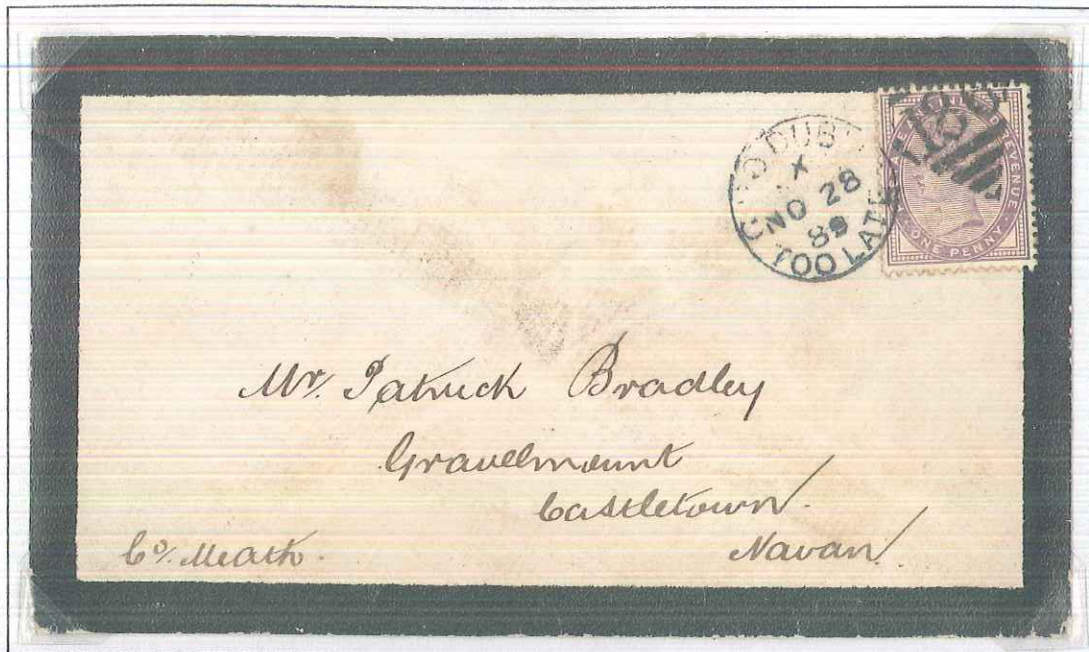 TOO LATE
NO 28
89
186
REVENUE
ONE PENNY
Mr. Patrick Bradley
Gravelmount
Castletown.
Navan
Co. Meath.